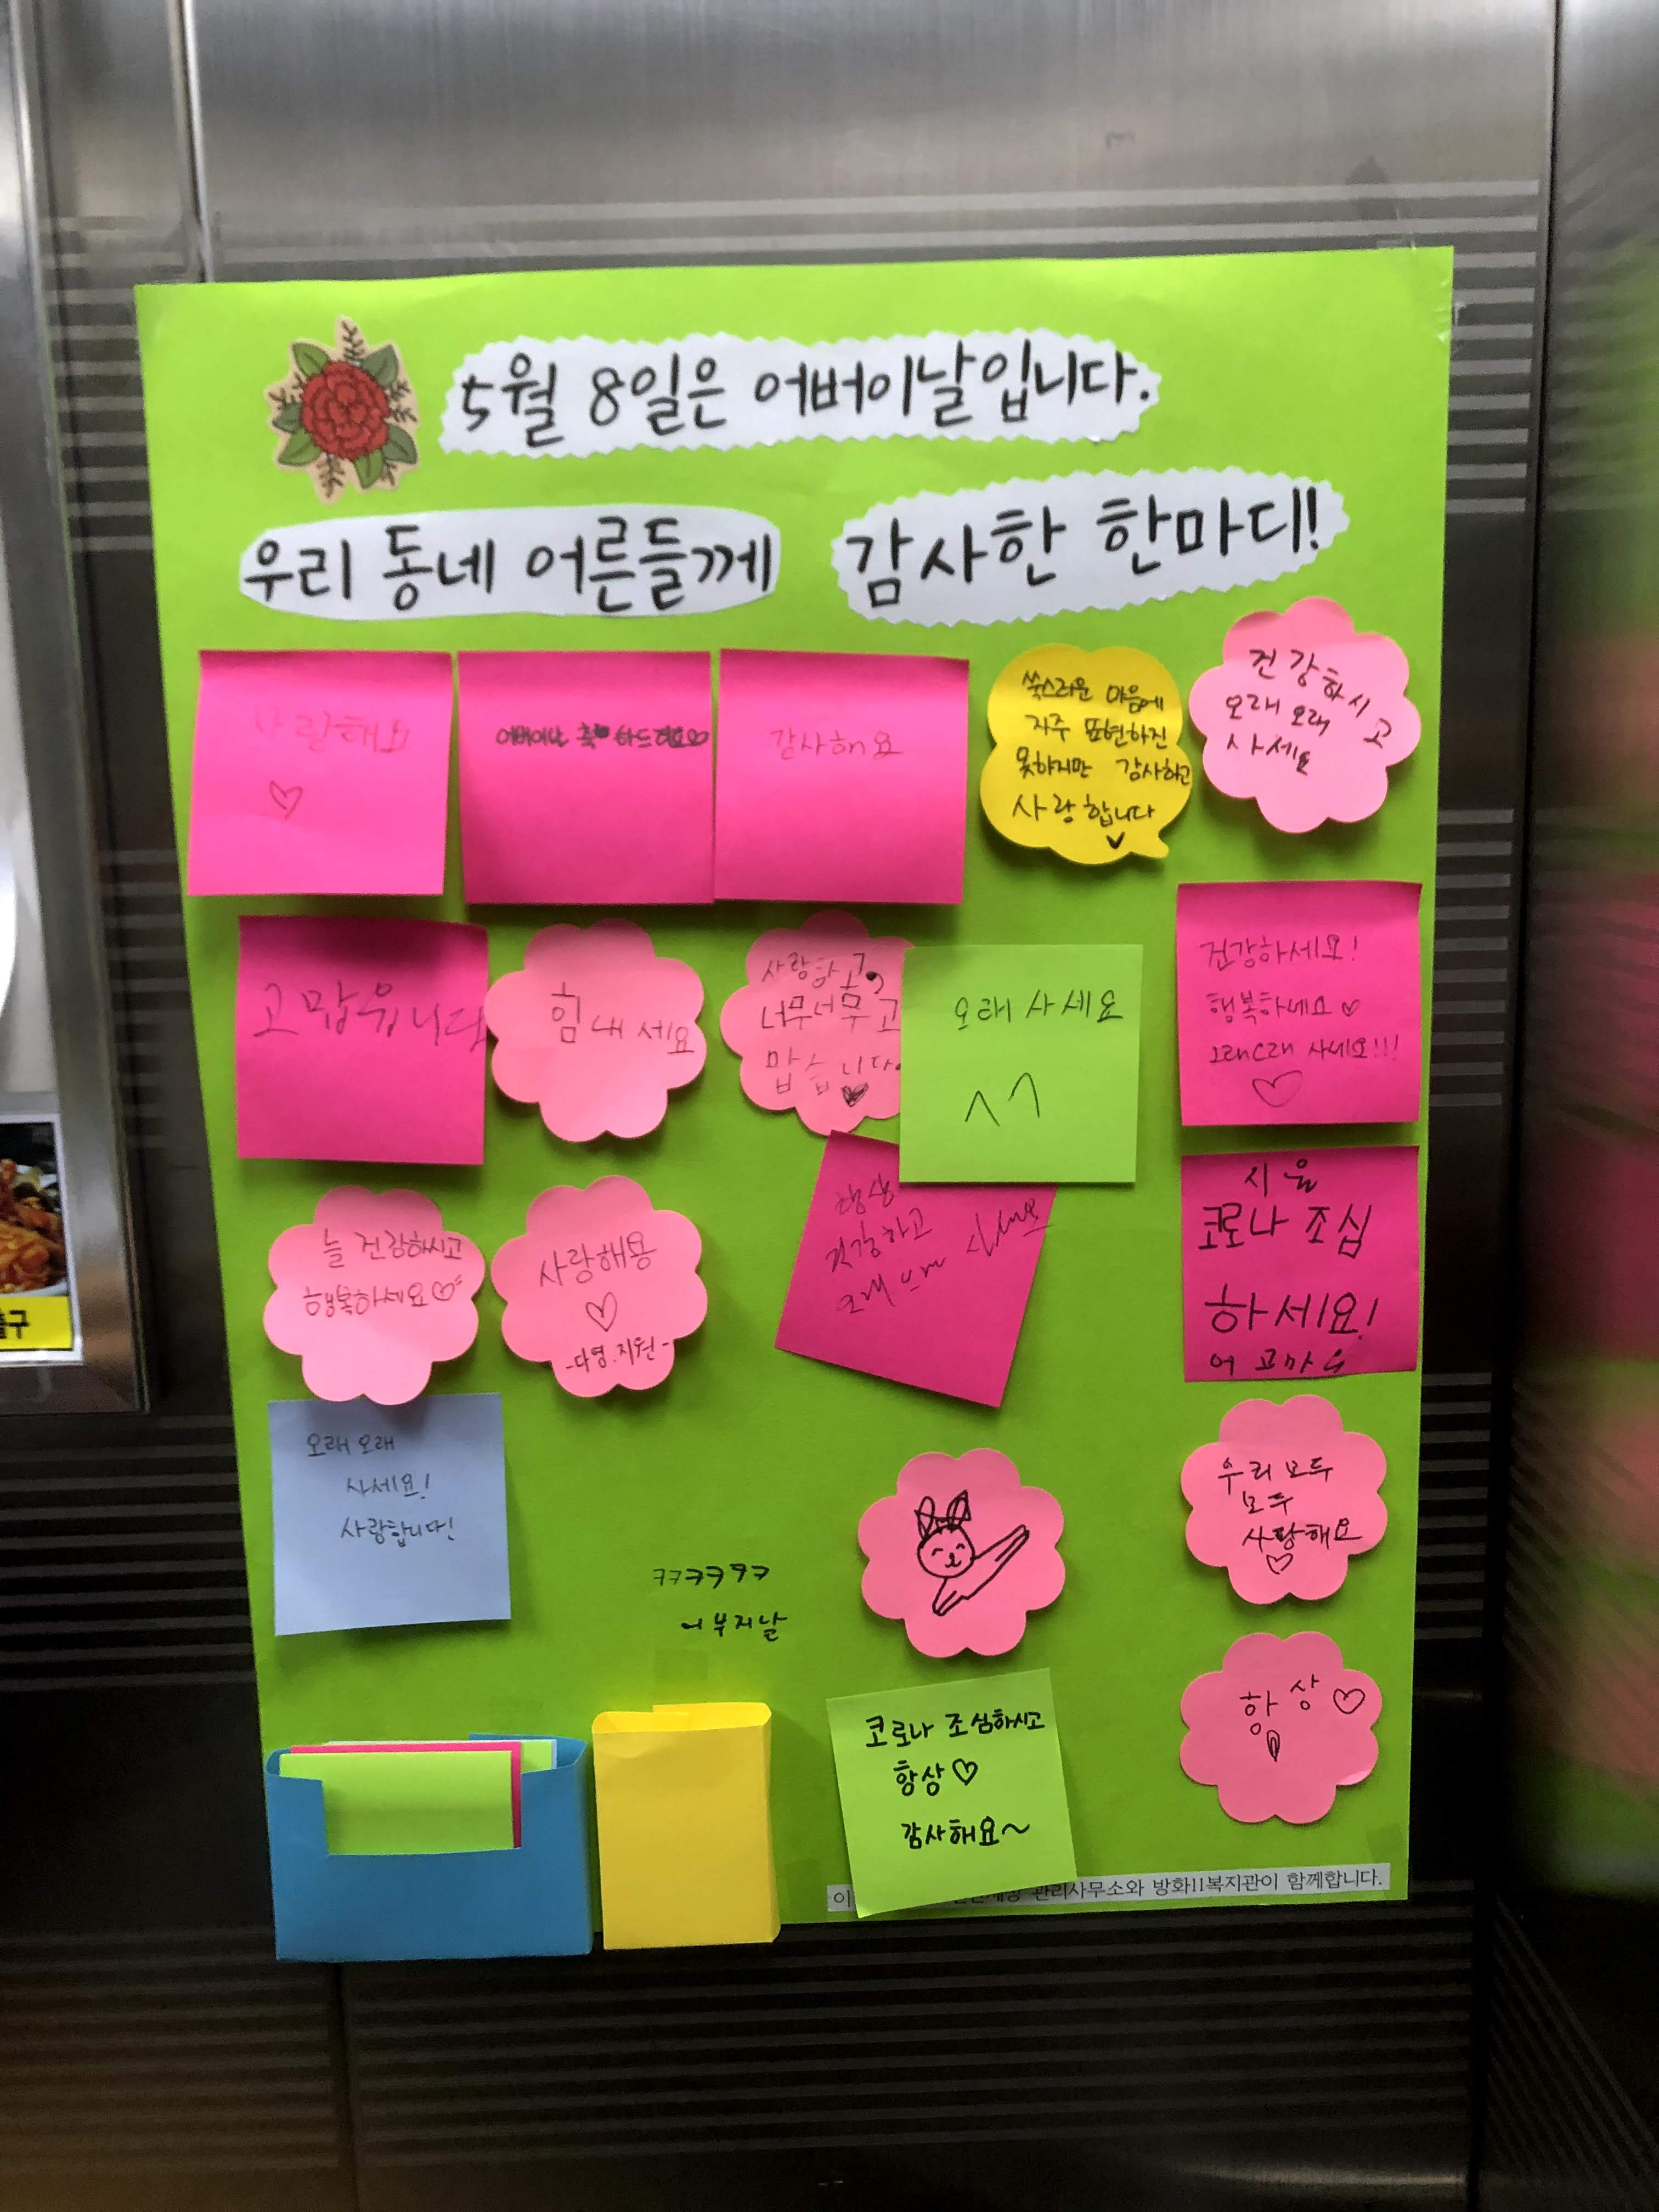 5월 8일은 어버이날입니다.
우리 동네 어른들께 감사한 한마디!
사랑해요
어버이날 축 하드려요
감사해요
쑥스러운 마음에
자주 표현하진
못하지만 감사하고
사랑합니다
건강하시고
오래오래
사세요
고맙웁니다
힘내세요
사랑하고,
너무너무 고
맙습니다
오래 사세요
^^
건강하세요!
행복하세요
사세요!!!
늘 건강하시고
행복하세요
사랑해용
-다영.지원-
항상
건강하고
오래
시율
코로나 조심
하세요!
오래 오래
사세요!
사랑합니다!
ㅋㅋㅋㅋㅋㅋ
우리 모두
모두
사랑해요
항상
코로나 조심하시고
항상
감사해요~
관리사무소와 방화11복지관이 함께합니다.